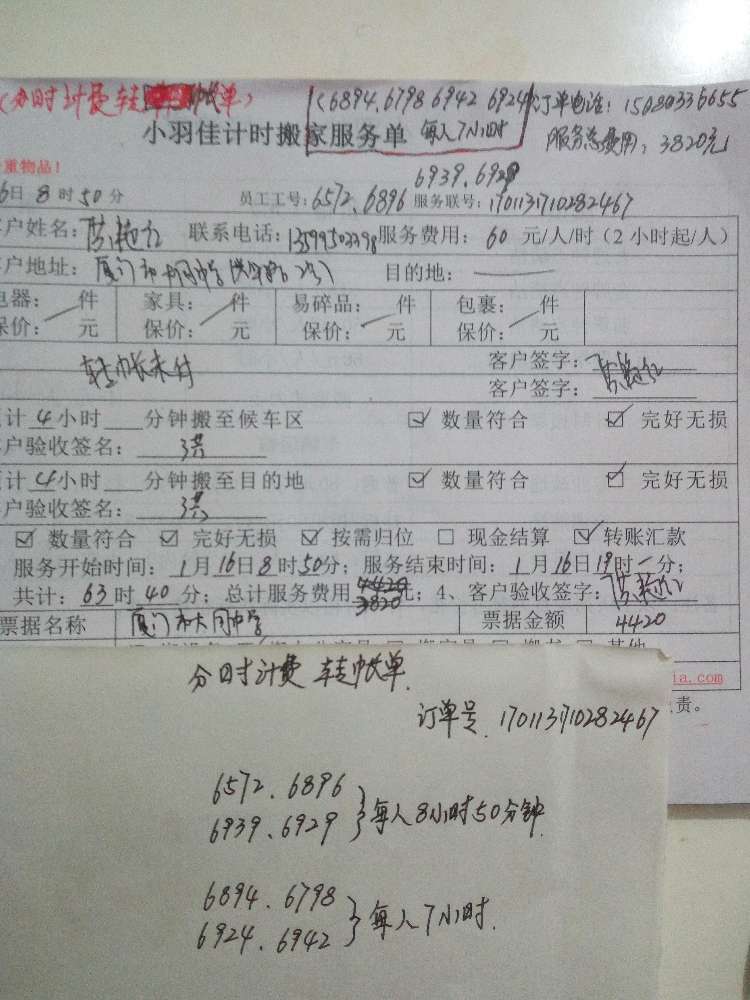 (分时计费转帐单)
(6894.6798 6942 6924 订单电话：15080336655
小羽佳计时搬家服务单 每人7小时 服务总费用：3820元
重物品！
6939.6929
6日8时50分 员工工号：6572.6896 服务联号：1701131710282467
户姓名： 联系电话：13599502398 服务费用：60 元/人/时（2 小时起/人）
户地址：厦门市大同中学 目的地：
电器： 件 家具： 件 易碎品： 件 包裹： 件
保价： 元 保价： 元 保价： 元 保价： 元
转帐未付 客户签字：
客户签字：
计4小时 分钟搬至候车区 数量符合 完好无损
户验收签名：
计4小时 分钟搬至目的地 数量符合 完好无损
户验收签名：
数量符合 完好无损 按需归位 现金结算 转账汇款
服务开始时间：1月16日8时50分；服务结束时间：1月16日19时一分；
共计：63时40分；总计服务费用4420元；4、客户验收签字：
3820
票据名称 厦门市大同中学 票据金额 4420
ia.com
责。
分时计费 转帐单.
订单号.1701131710282467
6572.6896
6939.6929 每人8小时50分钟.
6894.6798
6924.6942 每人7小时.